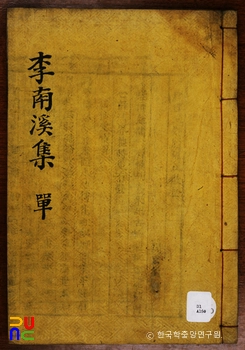 李南溪集 單
D1
© 한국학중앙연구원